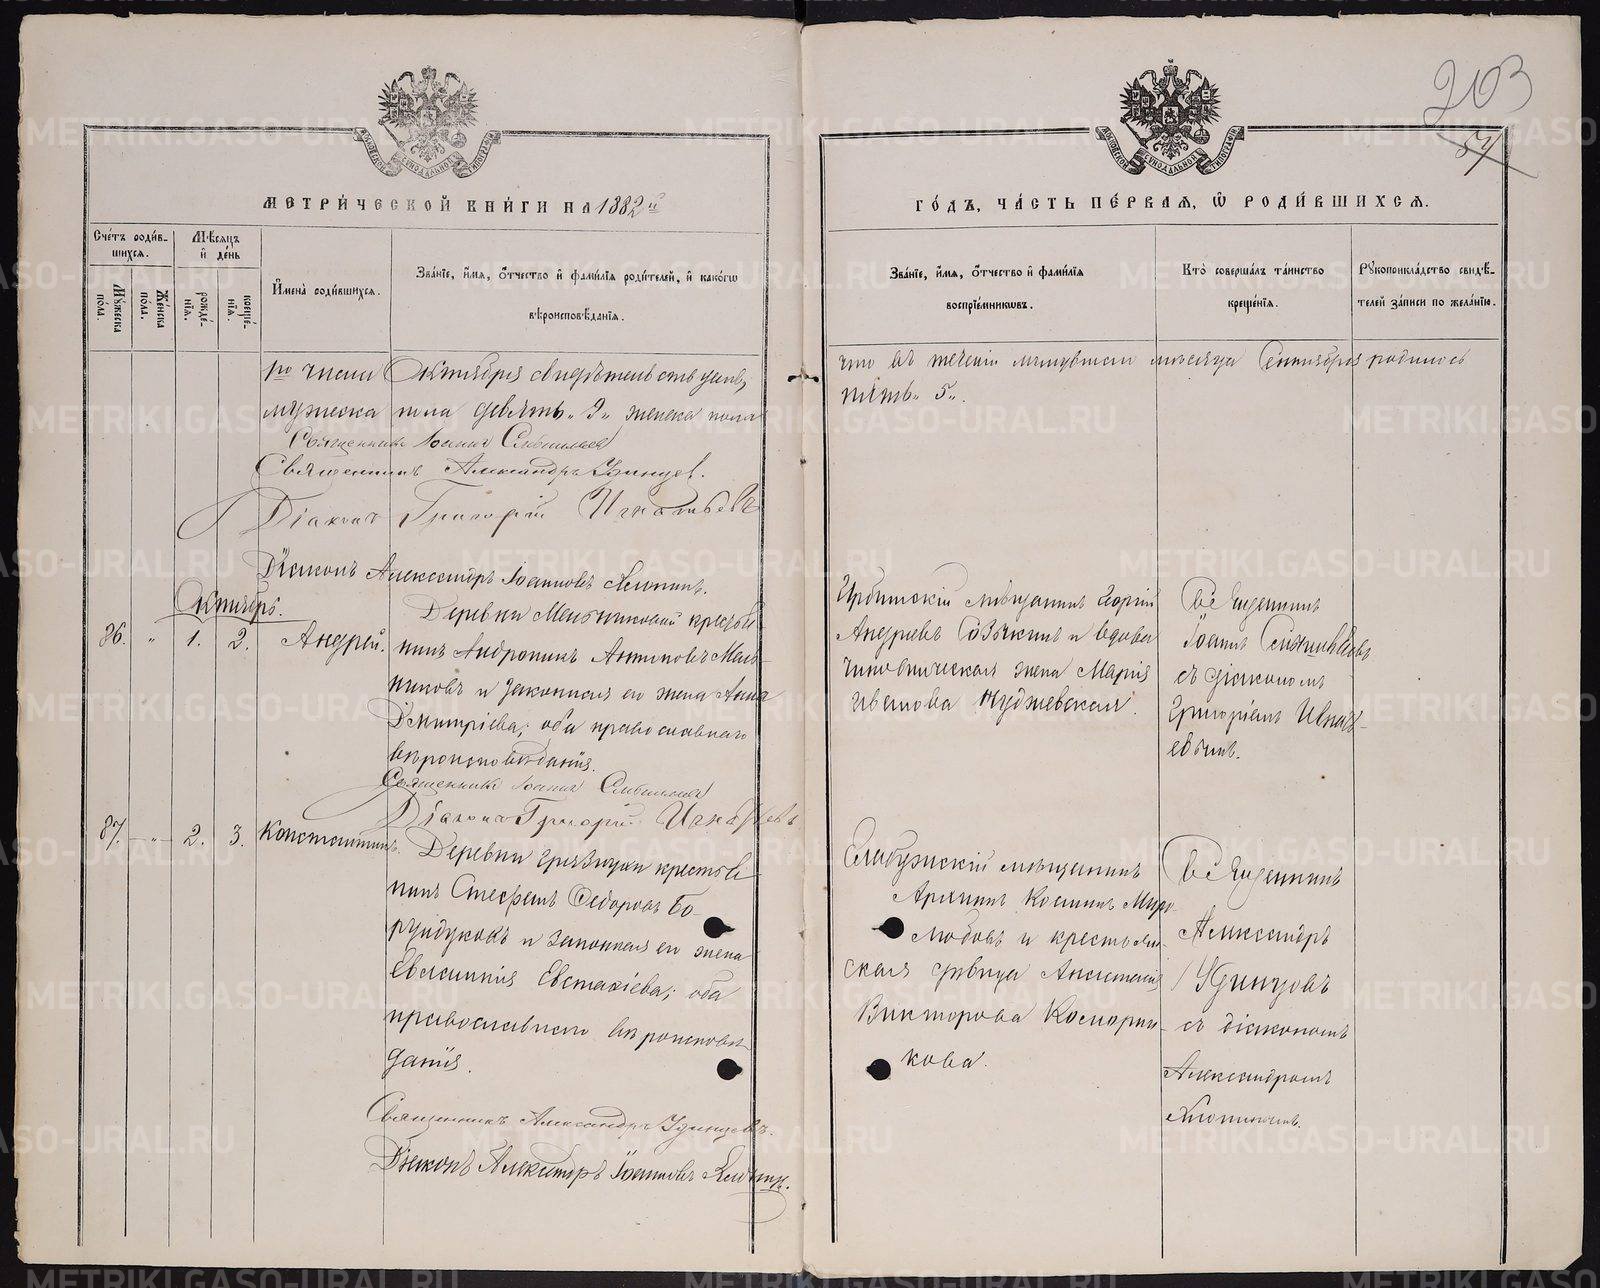 203
57
МЕТРИ́ЧЕСКОЙ КНИ́ГИ НА 1882й
ГО́ДЪ, ЧА́СТЬ ПЕ́РВАЯ, Ѡ РОДИ́ВШИХСѦ.
Сче́тъ роди́в-
шихся.
Мꙋ́жеска по́ла.
Же́нска по́ла.
Мѣ́сяцъ
и̂ де́нь
рожде́-
нїя.
креще́-
нїя.
И̂мена̀ роди́вшихся.
Зва́нїе, и̂мя, ѻ́тчество и̂ фами́лїя роди́телей, и̂ како́гѡ
вѣроисповѣ́данїя.
Зва́нїе, и̂мя, ѻ́тчество и̂ фами́лїя
воспрїе́мникѡвъ.
Кто̀ соверша́лъ та́инство
креще́нїя.
Рꙋкоприкла́дство свидѣ́-
телей за́писи по жела́нїю.
1го числа Октября свидѣтельствуемъ,
что въ теченіи минувшаго мѣсяца Сентября родилось
мужеска пола девять „9„ женска пола
пять „5„.
Священникъ Іоаннъ
Священникъ Александръ Удинцев.
Діаконъ Григорій Игнатьевъ
Діаконъ Александръ Іоанновъ
Октябрь.
86. „ 1. 2. Андрей.
Деревни Мельниковой крестья-
нинъ Андроникъ Антиповъ Мель-
никовъ и законная его жена Анна
Дмитріева; оба православнаго
вѣроисповѣданія.
Священникъ Іоаннъ
Діаконъ Григорій Игнатьевъ
Ирбитскій мѣщанинъ Георгій
Андреевъ и вдова
чиновническая жена Марія
Иванова
Священникъ
Іоаннъ
съ діакономъ
Григоріемъ Игнать-
евымъ.
87. „ 2. 3. Константинъ.
Деревни крестья-
нинъ Стефанъ Ѳедоровъ Бо-
рундуковъ и законная его жена
Евстафіева; оба
православнаго вѣроисповѣ-
данія.
Священникъ Александръ Удинцевъ.
Діаконъ Александръ Іоанновъ
Елабужскій мѣщанинъ
Архипъ Косминъ Миро-
любовъ и крестьян-
ская дѣвица Анастасія
Викторова
кова.
Священникъ
Александръ
Удинцовъ
съ діакономъ
Александромъ
METRIKI.GASO-URAL.RU